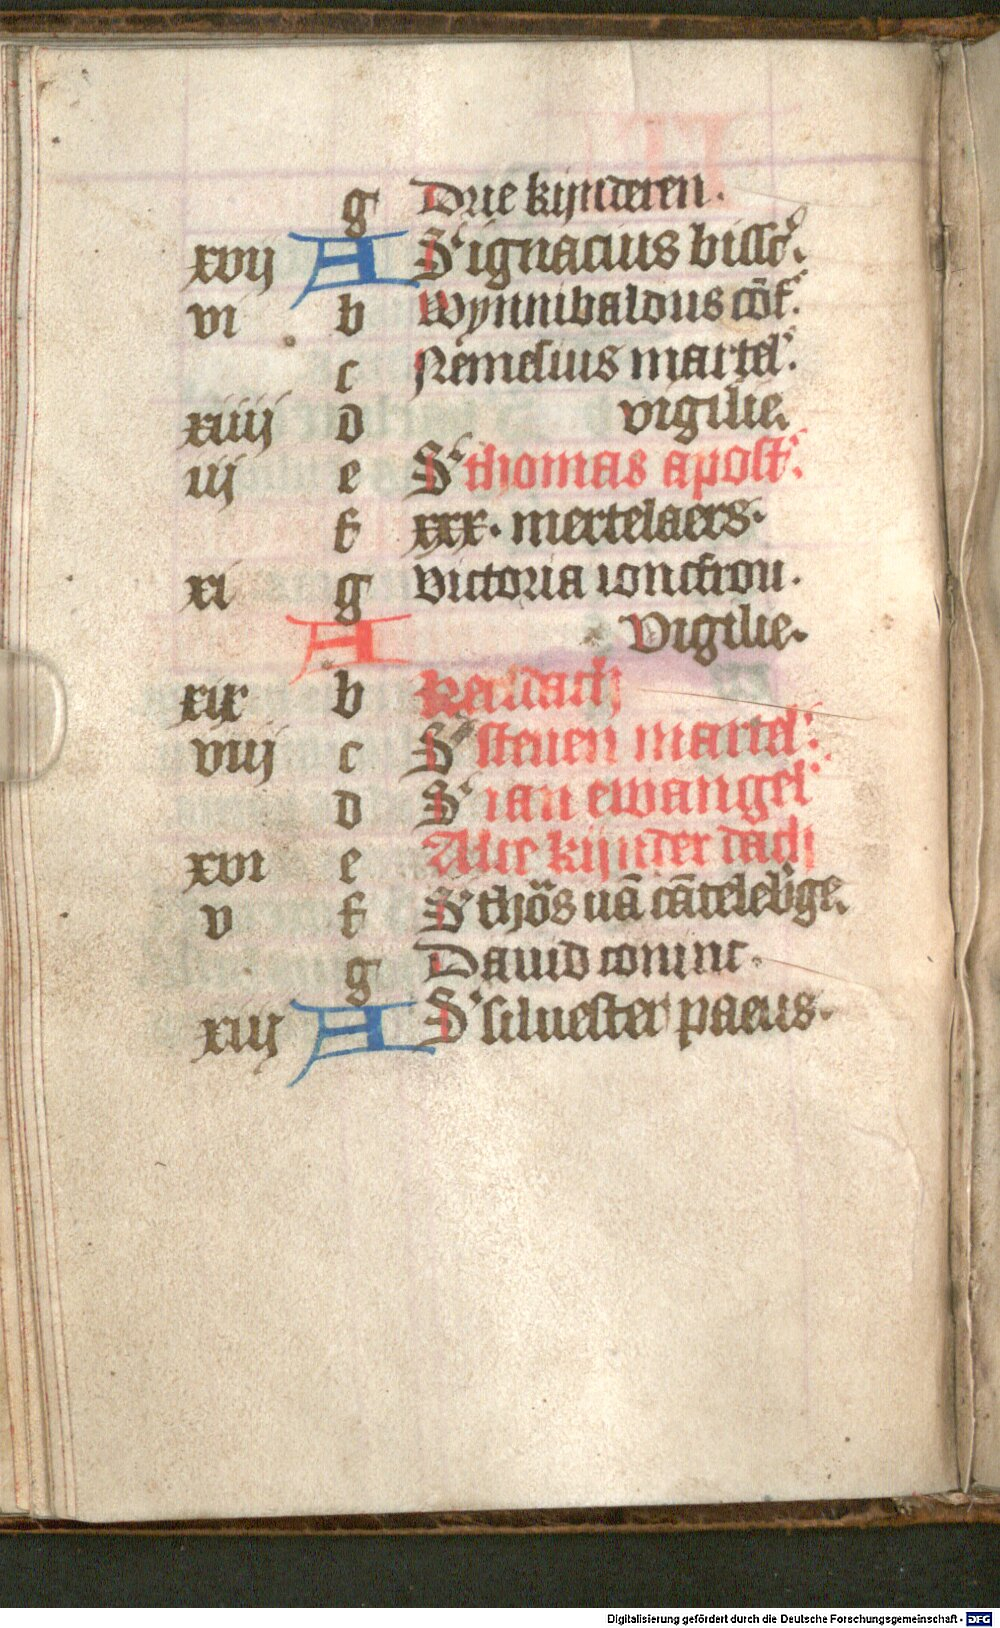 g Drie kijnderen.
xvij A St ignacius bissc.
vi b Wynnibaldus cōf.
c Nemesius martel.
xiiij d vigilie.
iij e St thomas apost.
f xxx. mertelaers.
xi g Victoria ioncfrou.
A Vigilie.
xix b Kersdach
viij c St steuen martel.
d St ian ewangel
xvi e Alre kijnder dach
v f St thōs uā cātelebge.
g Dauid coninc.
xiij A St siluester paeus.
Digitalisierung gefördert durch die Deutsche Forschungsgemeinschaft - DFG